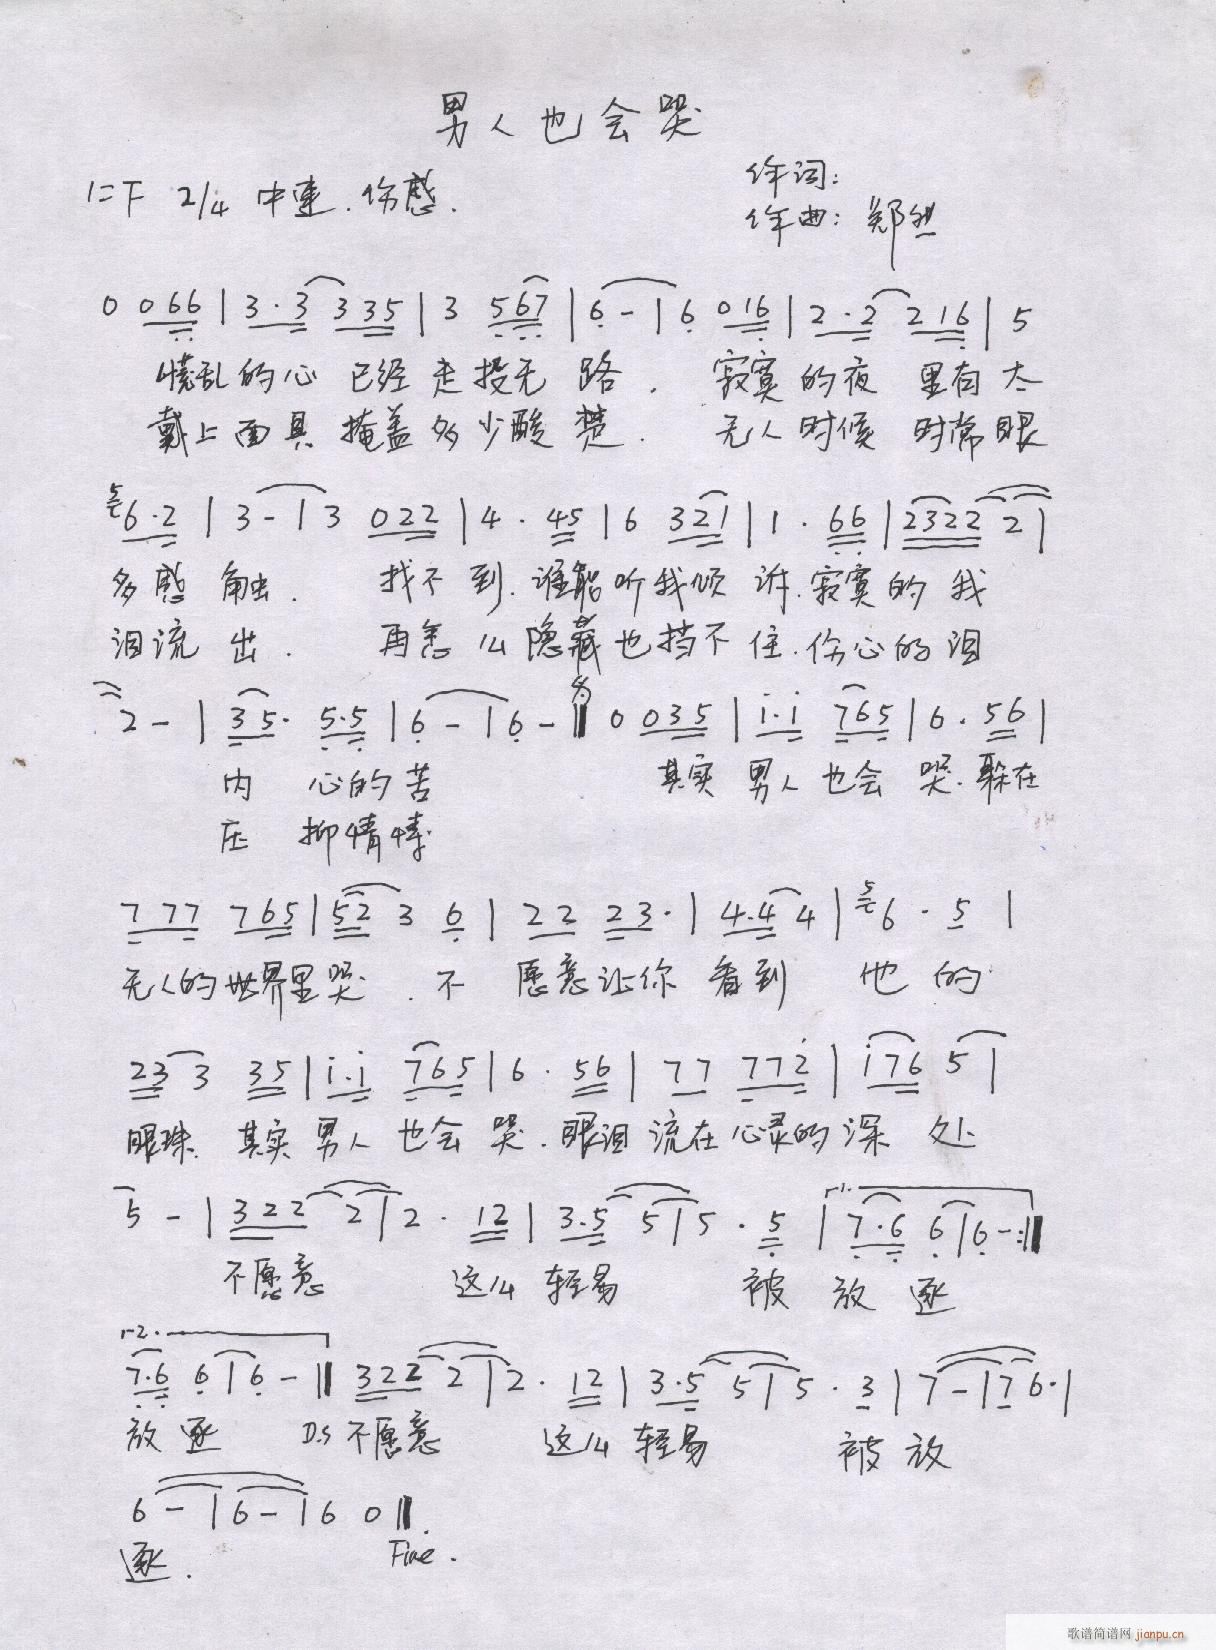 男人也会哭
1=F 2/4 中速.伤感.
作词:
作曲:郑
0 066|3·3 335|3 567|6-|6 016|2·2 216|5
慌乱的心 已经走投无路. 寂寞的夜 里有太
戴上面具 掩盖多少酸楚. 无人时候 时常眼
5 6·2|3-|3 022|4·45|6 321|1·66|2322 2|
多感触. 找不到.谁能听我倾诉.寂寞的我
泪流出. 再怎么隐藏也挡不住.伤心的泪
2-|35· 5·5|6-|6-‖0 035|i·i 765|6·56|
内 心的苦 其实 男人也会哭.躲在
压 抑情愫.
7 77 765|52 3 6|22 23·|4·4 4|5 6·5|
无人的世界里哭.不 愿意让你 看到 他的
23 3 35|i·i 765|6·56|77 772|i76 5|
眼珠. 其实 男人也会哭.眼泪 流在心灵的深处
5-|322 2|2·12|3·5 5|5·5|1. 7·6 6|6-:‖
不愿意 这么 轻易 被 放逐
2. 7·6 6|6-‖322 2|2·12|3·5 5|5·3|7-|7 6·|
放逐 D.S 不愿意 这么 轻易 被放
6-|6-|6 0‖.
逐. Fine.
歌谱简谱网 jianpu.cn